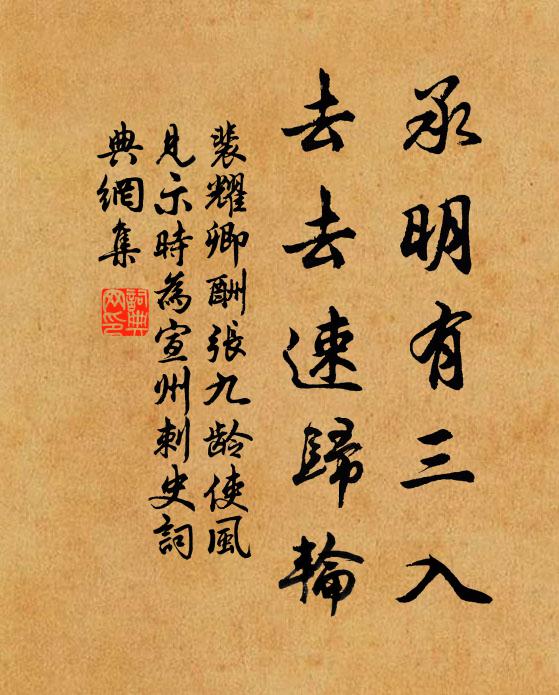 承明有三入
去去速歸輪
裴耀卿酬張九龄使風
見示時為宣州刺史詞
典網集
詞典
网印